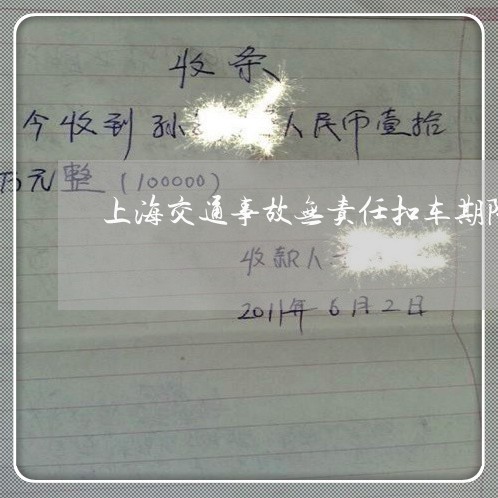 收条
今收到孙 人民币壹拾
万元整(100000)
上海交通事故無責任扣车期限
收款人
2011年6月2日